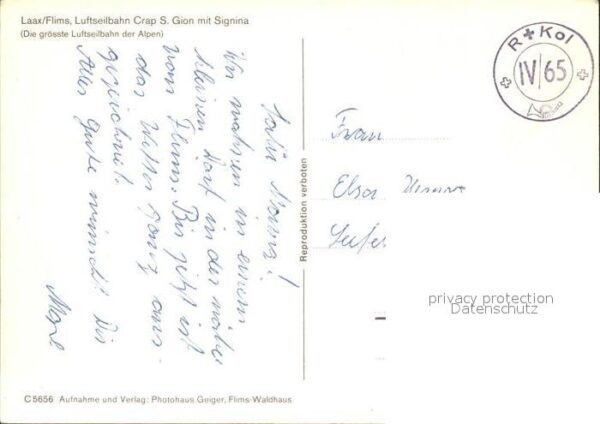 Laax/Flims, Luftseilbahn Crap S. Gion mit Signina
(Die grösste Luftseilbahn der Alpen)
Wir wohnen in einem
kleinen Dorf in der nähe
von Flims. Bis jetzt ist
das Wetter ganz aus-
gezeichnet.
Alles Gute wünscht Dir
R + Kol
IV/65
Frau
Elsa
Reproduktion verboten
privacy protection
Datenschutz
C 5656 Aufnahme und Verlag: Photohaus Geiger, Flims-Waldhaus